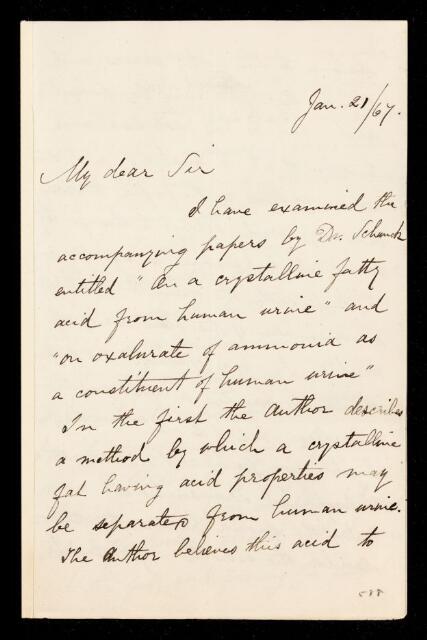 Jan. 21/67.
My dear Sir
I have examined the
accompanying papers by Dr. Schunck
entitled "On a crystalline fatty
acid from human urine" and
"on oxalurate of ammonia as
a constituent of human urine"
In the first the Author describes
a method by which a crystalline
fat having acid properties may
be separated from human urine.
The Author believes this acid to
588